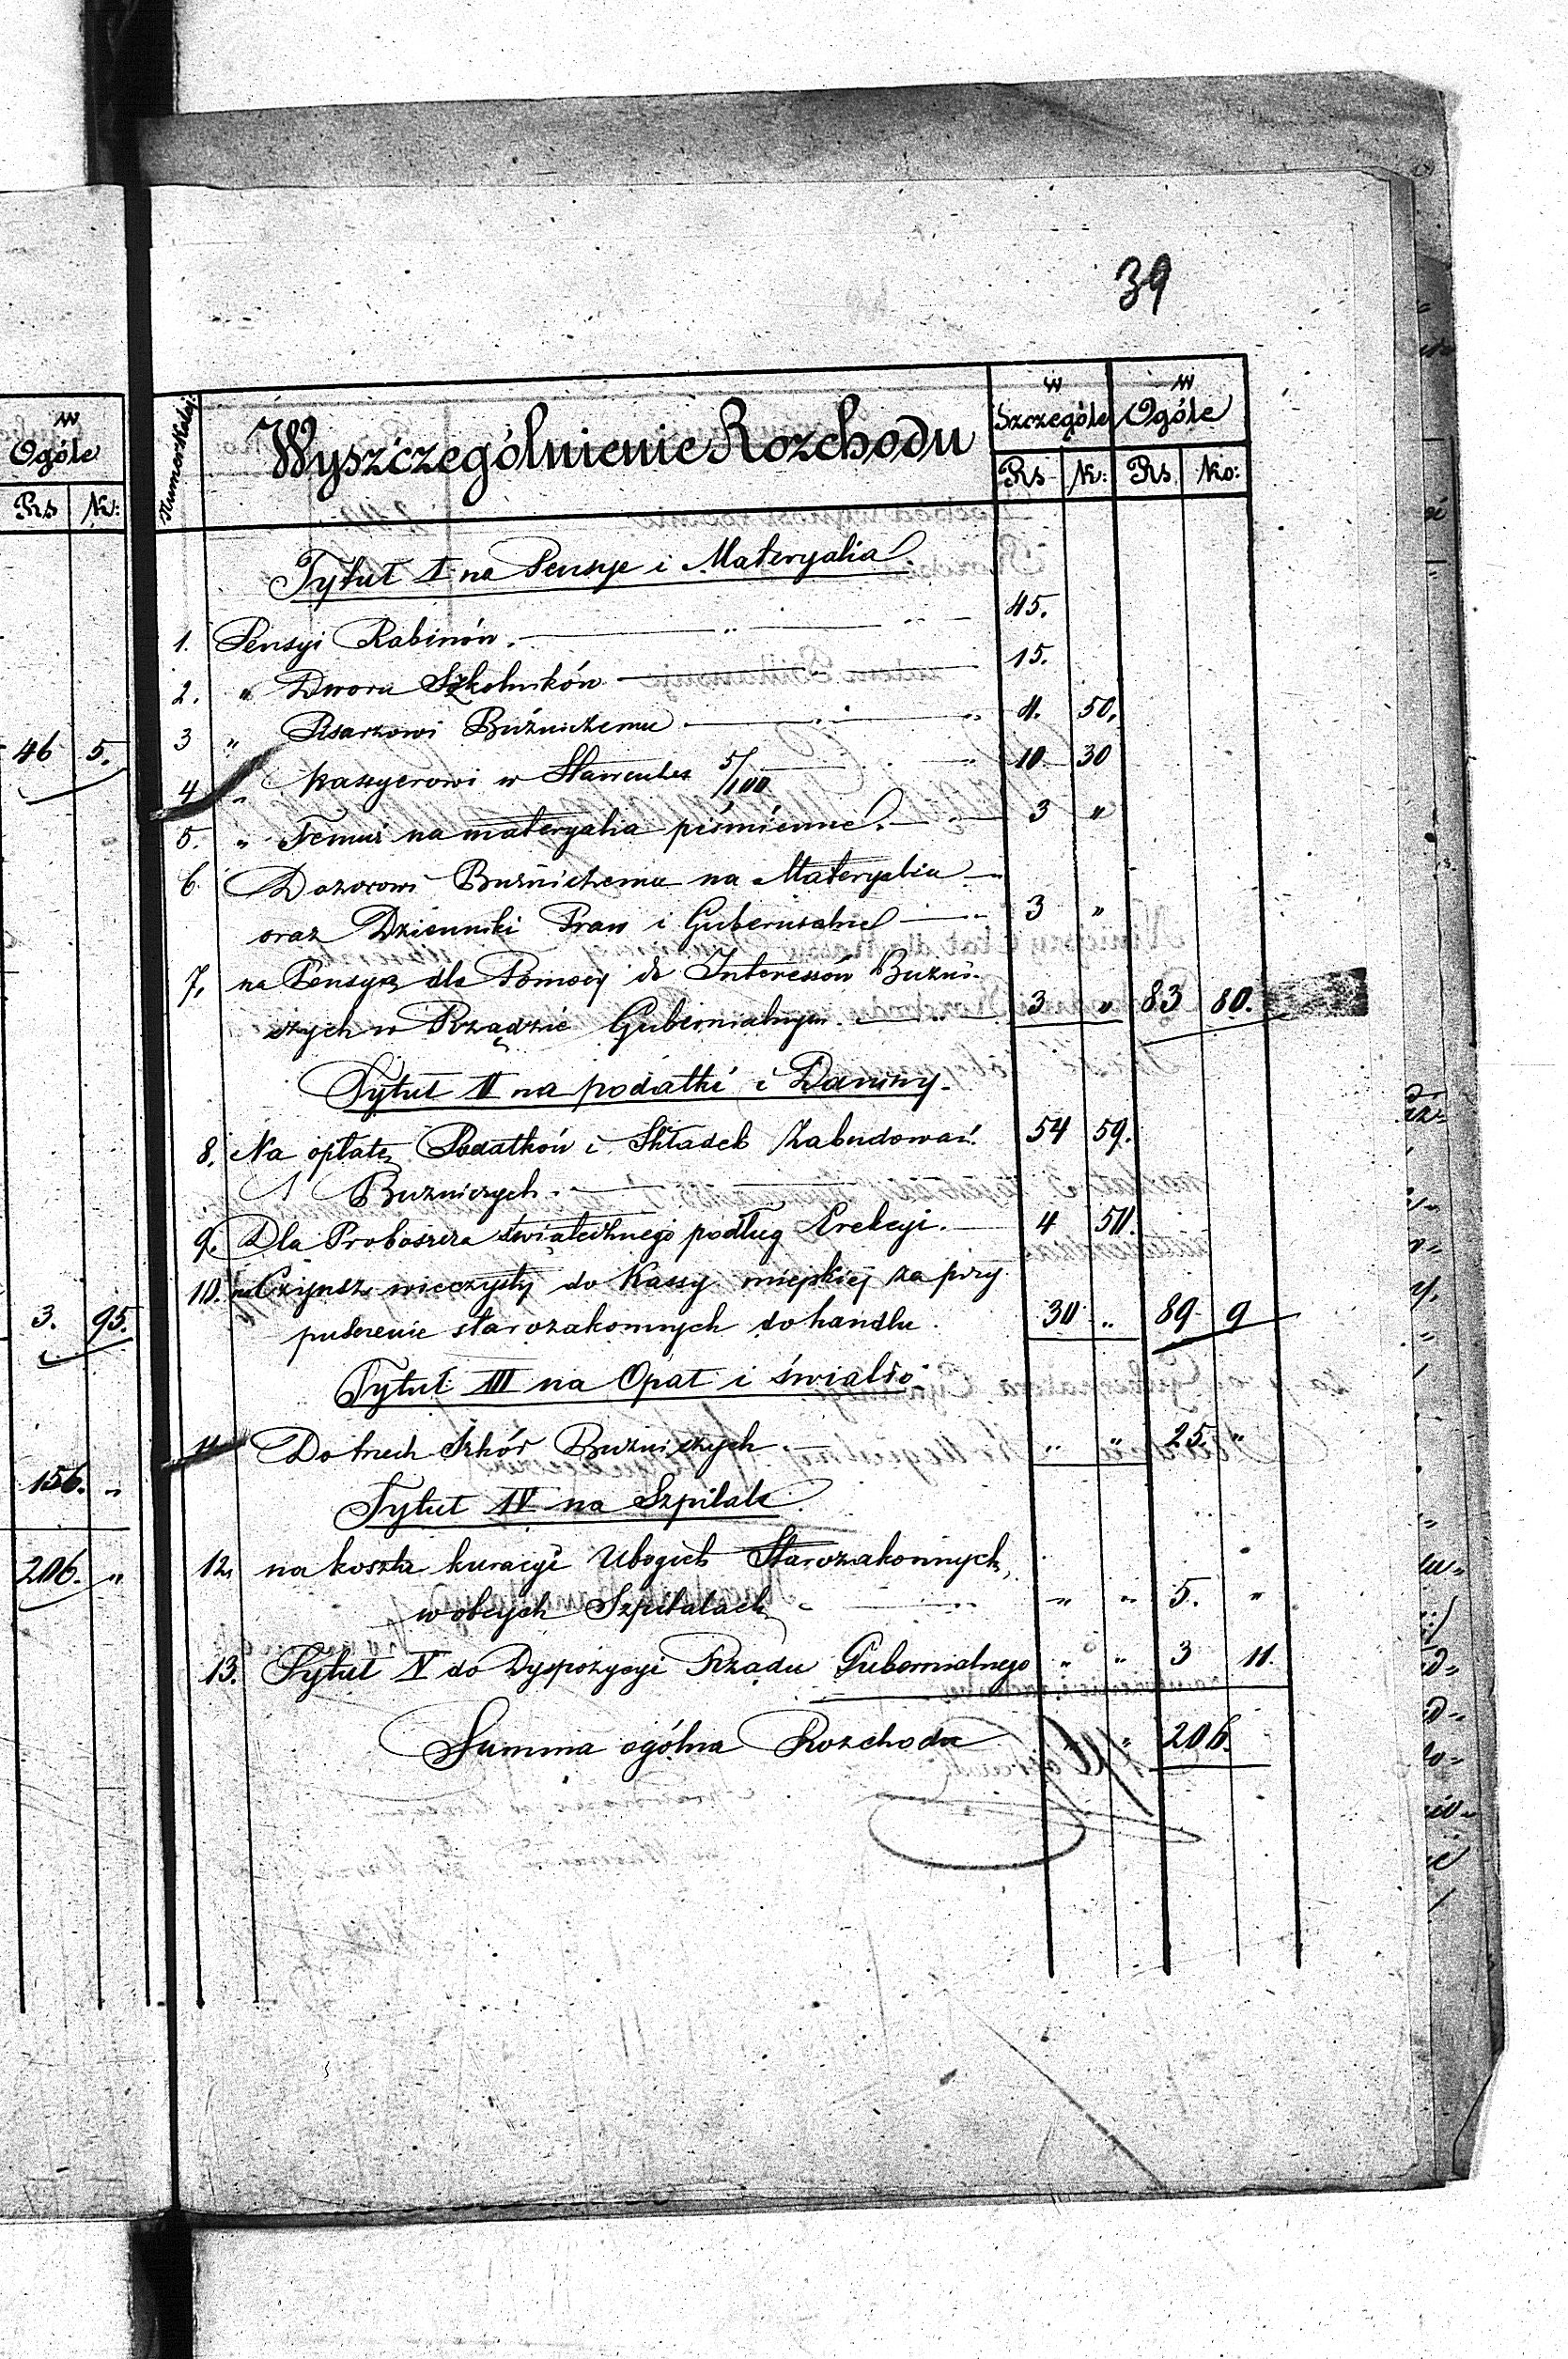 39
w Ogóle
Rs K:
46 5.
3. 95.
156. "
206. "
Numer Kolej: Wyszczególnienie Rozchodu w Szczególe w Ogóle
Rs K: Rs Ko:
Tytuł I na Pensye i Materyalia
1. Pensyi Rabinów. 45.
2. " Dwom Szkolników 15.
3 " Pisarzowi Bużniczemu 4. 50.
4 " Kassyerowi w 5/100 10 30
5. " Temuż na materyalia piśmienne. 3 "
6. Dozorowi Bużniczemu na Materyalia
oraz Dzienniki Praw i Gubernialne 3 "
7. na Pensye dla Pomocy do Interessów Bużni-
czych w Rządzie Gubernialnym 3 " 83 80.
Tytuł II na podatki i Daniny.
8. Na opłatę Podatków i Składek Zabudowań 54 59.
Bużniczych.
9. Dla Proboszcza świątecznego podług Erekcyi. 4 50.
10. na Czynsz wieczysty do Kassy miejskiej za przy
puszczenie starozakonnych do handlu. 30 " 89 9
Tytuł III na Opał i światło
11 Do trzech Szkół Bużniczych " " 25. "
Tytuł IV na Szpitale
12. na koszta kuracyi Ubogich Starozakonnych
w obcych Szpitalach " " 5. "
13. Tytuł V do Dyspozycyi Rządu Gubernialnego " " 3 11.
Summa ogólna Rozchodu " " 206.